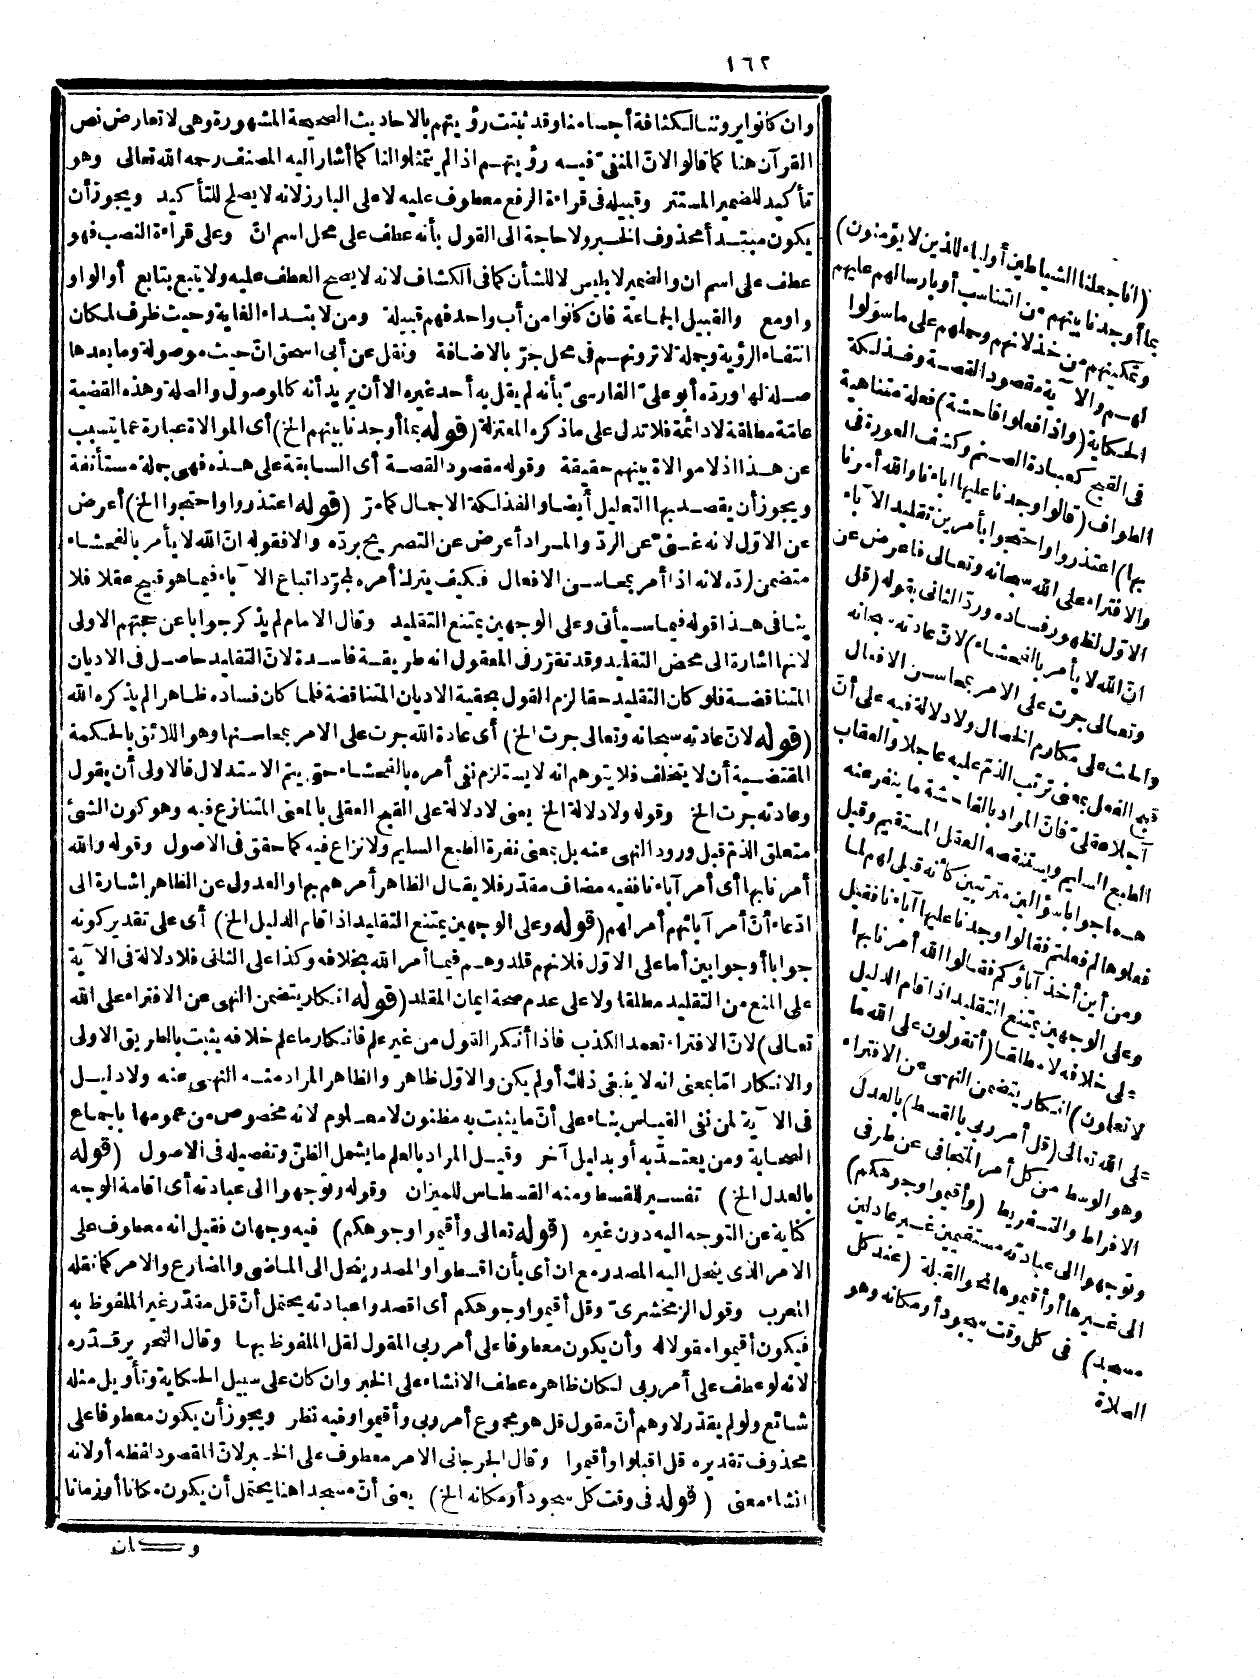 ١٦٢
وان كانوا يروننا لكثافة أجسامنا وقد ثبتت رؤيتهم بالاحاديث الصحيحة المشهورة وهى لا تعارض نص
القرآن هنا كما قالوا لانّ المنفىّ فيه رؤيتهم اذا لم يتمثلوا لنا كما أشار اليه المصنف رحمه الله تعالى وهو
تأكيد للضمير المستتر وقبيله فى قراءة الرفع معطوف عليه لا على البارز لانه لا يصلح للتأكيد ويجوز أن
يكون مبتدأ محذوف الخبر ولا حاجة الى القول بأنه عطف على محل اسم انّ وعلى قراءة النصب فهو
عطف على اسم ان والضمير لابليس لا للشأن كما فى الكشاف لانه لا يصح العطف عليه ولا يتبع بتابع أو الواو
واومع والقبيل الجماعة فان كانوا من أب واحد فهم قبيلة ومن لابتداء الغاية وحيث ظرف لمكان
انتفاء الرؤية وجملة لا ترونهم فى محل جرّ بالاضافة ونقل عن أبى اسحق انّ حيث موصولة وما بعدها
صلة لها ورده أبو علىّ الفارسىّ بأنه لم يقل به أحد غيره الا أن يريد أنه كالموصول والصلة وهذه القضية
عامّة مطلقة لا دائمة فلا تدل على ما ذكره المعتزلة (قوله بما أوجدنا بينهم الخ) أى الموالاة عبارة عما يتسبب
عن هذا اذ لا موالاة بينهم حقيقة وقوله مقصود القصة أى السابقة على هذه فهى جملة مستأنفة
ويجوز أن يقصد بها التعليل أيضا والفذلكة الاجمال كما مرّ (قوله اعتذروا واحتجوا الخ) أعرض
عن الاوّل لانه غنىّ عن الردّ والمراد أعرض عن التصريح بردّه والا فقوله انّ الله لا يأمر بالفحشاء
متضمن لردّه لانه اذا أمر بمحاسن الافعال فكيف يترك أمره لمجرّد اتباع الآباء فيما هو قبيح عقلا فلا
ينافى هذا قوله فيما سيأتى وعلى الوجهين يمتنع التقليد وقال الامام لم يذكر جوابا عن حجتهم الاولى
لانها اشارة الى محض التقليد وقد تقرّر فى المعقول انه طريقة فاسدة لانّ التقليد حاصل فى الاديان
المتناقضة فلو كان التقليد حقا لزم القول بحقية الاديان المتناقضة فلما كان فساده ظاهرا لم يذكره الله
(قوله لانّ عادته سبحانه وتعالى جرت الخ) أى عادة الله جرت على الامر بمحاسنها وهو اللائق بالحكمة
المقتضية أن لا يتخلف فلا يتوهم انه لا يستلزم نفى أمره بالفحشاء حتى يتم الاستدلال فالاولى أن يقول
وعادته جرت الخ وقوله ولا دلالة الخ يعنى لا دلالة على القبح العقلى بالمعنى المتنازع فيه وهو كون الشئ
متعلق الذمّ قبل ورود النهى عنه بل بمعنى نفرة الطبع السليم ولا نزاع فيه كما حقق فى الاصول وقوله والله
أمرنا بها أى أمر آباءنا ففيه مضاف مقدّر فلا يقال الظاهر أمرهم بها والعدول عن الظاهر اشارة الى
ادّعاء أنّ أمر آبائهم أمر لهم (قوله وعلى الوجهين يمتنع التقليد اذا قام الدليل الخ) أى على تقدير كونه
جوابا أو جوابين أما على الاوّل فلانهم قلدوهم فيما أمر الله بخلافه وكذا على الثانى فلا دلالة فى الآية
على المنع من التقليد مطلقا ولا على عدم صحة ايمان المقلد (قوله انكار يتضمن النهى عن الافتراء على الله
تعالى) لانّ الافتراء تعمد الكذب فاذا أنكر القول من غير علم فانكار ما علم خلافه يثبت بالطريق الاولى
والانكار امّا بمعنى انه لا ينبغى ذلك أو لم يكن والاوّل ظاهر والظاهر المراد منه النهى عنه ولا دليل
فى الآية لمن نفى القياس بناء على أنّ ما يثبت به مظنون لا معلوم لانه مخصوص من عمومها باجماع
الصحابة ومن يعتدّ به أو بدليل آخر وقيل المراد بالعلم ما يشمل الظنّ وتفصيله فى الاصول (قوله
بالعدل الخ) تفسير للقسط ومنه القسطاس للميزان وقوله وتوجهوا الى عبادته أى اقامة الوجه
كناية عن التوجه اليه دون غيره (قوله تعالى وأقيموا وجوهكم) فيه وجهان فقيل انه معطوف على
الامر الذى ينحل اليه المصدر مع ان أى بأن اقسطوا والمصدر ينحل الى الماضى والمضارع والامر كما نقله
المعرب وقول الزمخشرىّ وقل أقيموا وجوهكم أى اقصدوا عبادته يحتمل أنّ قل مقدّر غير الملفوظ به
فيكون أقيموا مقولا له وأن يكون معطوفا على أمر ربى المقول لقل الملفوظ بها وقال النحرير قدّره
لانه لو عطف على أمر ربى لكان ظاهره عطف الانشاء على الخبر وان كان على سبيل الحكاية وتأويل مثله
شائع ولو لم يقدّر لاوهم أنّ مقول قل هو مجموع أمر ربى وأقيموا وفيه نظر ويجوز أن يكون معطوفا على
محذوف تقديره قل اقبلوا وأقيموا وقال الجرجانى الامر معطوف على الخبر لانّ المقصود لفظه أو لانه
انشاء معنى (قوله فى وقت كل سجود أو مكانه الخ) يعنى أنّ مسجدا هنا يحتمل أن يكون مكانا أو زمانا
وكان
(انا جعلنا الشياطين أولياء للذين لا يؤمنون)
بما أوجدنا بينهم من التناسب أو بارسالهم عليهم
وتمكينهم من خذلانهم وحملهم على ما سوّلوا
لهم والآية مقصود القصة وفذلكة
الحكاية (واذا فعلوا فاحشة) فعلة متناهية
فى القبح كعبادة الصنم وكشف العورة فى
الطواف (قالوا وجدنا عليها آباءنا والله أمرنا
بها) اعتذروا واحتجوا بأمرين تقليد الآباء
والافتراء على الله سبحانه وتعالى فأعرض عن
الاوّل لظهور فساده وردّ الثانى بقوله (قل
انّ الله لا يأمر بالفحشاء) لانّ عادته سبحانه
وتعالى جرت على الامر بمحاسن الافعال
والحث على مكارم الخصال ولا دلالة فيه على أنّ
قبح الفعل بمعنى ترتب الذمّ عليه عاجلا والعقاب
آجلا عقلىّ فانّ المراد بالفاحشة ما ينفر عنه
الطبع السليم ويستنقصه العقل المستقيم وقيل
هما جوابا سؤالين مترتبين كأنه قيل لهم لما
فعلوها لم فعلتم فقالوا وجدنا عليها آباءنا فقيل
ومن أين أخذ آباؤكم فقالوا الله أمرنا بها
وعلى الوجهين يمتنع التقليد اذا قام الدليل
على خلافه لا مطلقا (أتقولون على الله ما
لا تعلمون) انكار يتضمن النهى عن الافتراء
على الله تعالى (قل أمر ربى بالقسط) بالعدل
وهو الوسط من كل أمر المتجافى عن طرفى
الافراط والتفريط (وأقيموا وجوهكم)
وتوجهوا الى عبادته مستقيمين غير عادلين
الى غيرها أو أقيموها نحو القبلة (عند كل
مسجد) فى كل وقت سجود أو مكانه وهو
الصلاة